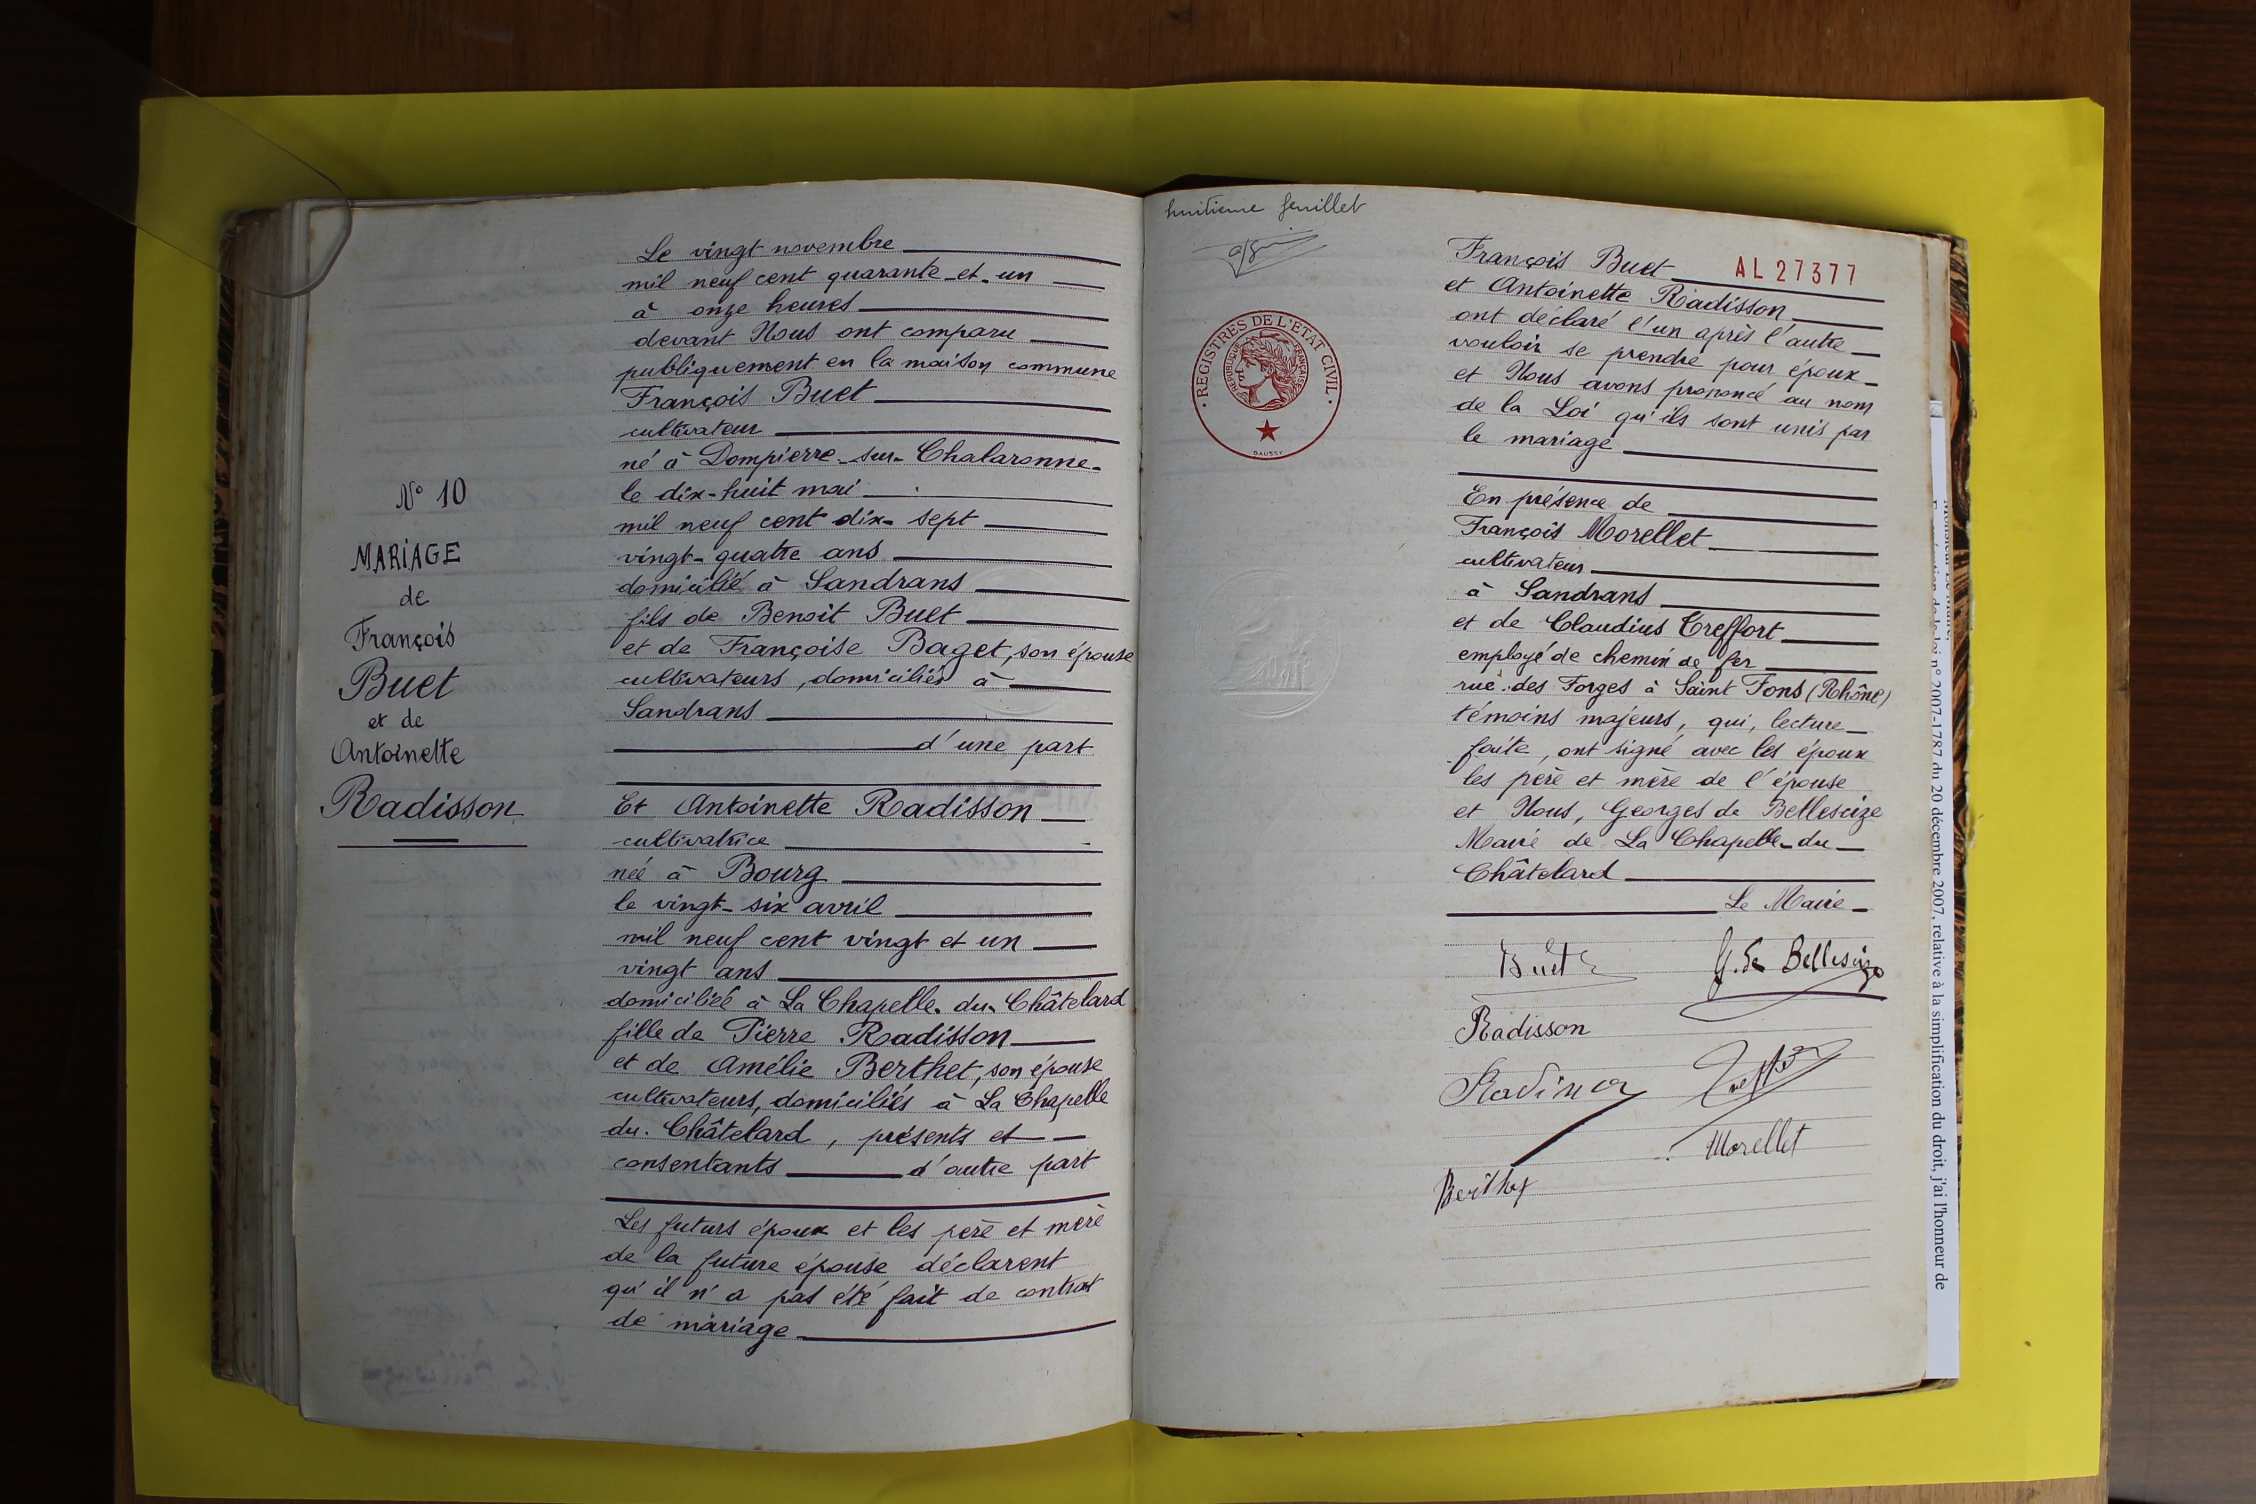 N° 10
MARIAGE
de
François
Buet
et de
Antoinette
Radisson
Le vingt novembre
mil neuf cent quarante et un
à onze heures
devant Nous ont comparu
publiquement en la maison commune
François Buet
cultivateur
né à Dompierre-sur-Chalaronne
le dix-huit mai
mil neuf cent dix-sept
vingt-quatre ans
domicilié à Sandrans
fils de Benoit Buet
et de Françoise Baget, son épouse
cultivateurs, domiciliés à
Sandrans
d'une part
Et Antoinette Radisson
cultivatrice
née à Bourg
le vingt-six avril
mil neuf cent vingt et un
vingt ans
domiciliée à La Chapelle-du-Châtelard
fille de Pierre Radisson
et de Amélie Berthet, son épouse
cultivateurs, domiciliés à La Chapelle
du Châtelard, présents et
consentants d'autre part
Les futurs époux et les père et mère
de la future épouse déclarent
qu'il n'a pas été fait de contrat
de mariage
huitième feuillet
REGISTRES DE L'ETAT CIVIL
REPUBLIQUE FRANÇAISE
DAUSSY
AL 27377
François Buet
et Antoinette Radisson
ont déclaré l'un après l'autre
vouloir se prendre pour époux
et Nous avons prononcé au nom
de la Loi qu'ils sont unis par
le mariage
En présence de
François Morellet
cultivateur
à Sandrans
et de Claudius Treffort
employé de chemin de fer
rue des Forges à Saint Fons (Rhône)
témoins majeurs, qui, lecture
faite, ont signé avec les époux
les père et mère de l'épouse
et Nous, Georges de Bellescize
Maire de La Chapelle-du-
Châtelard
Le Maire
Buet
G. de Bellescize
Radisson
Morellet
Berthet
loi n° 2007-1787 du 20 décembre 2007, relative à la simplification du droit, j'ai l'honneur de